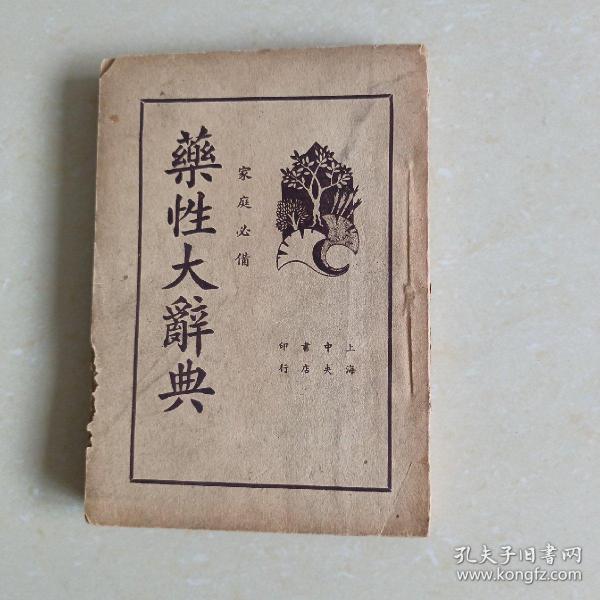 藥性大辭典
家庭必備
上海
中央
書店
印行
孔夫子旧書网
www.kongfz.com